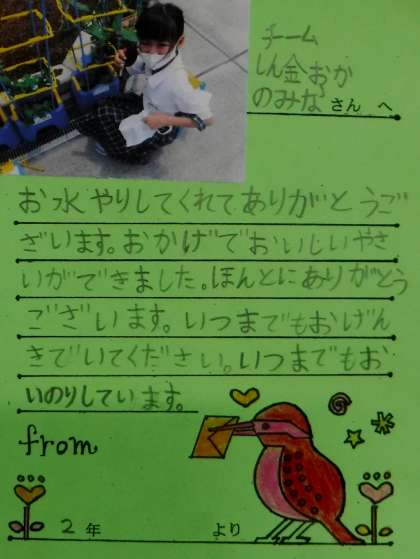 チーム
しん金おか
のみなさん へ
お水やりしてくれてありがとうご
ざいます。おかげでおいしいやさ
いができました。ほんとにありがとう
ございます。いつまでもおげん
きでいてください。いつまでもお
いのりしています。
from
2年 より